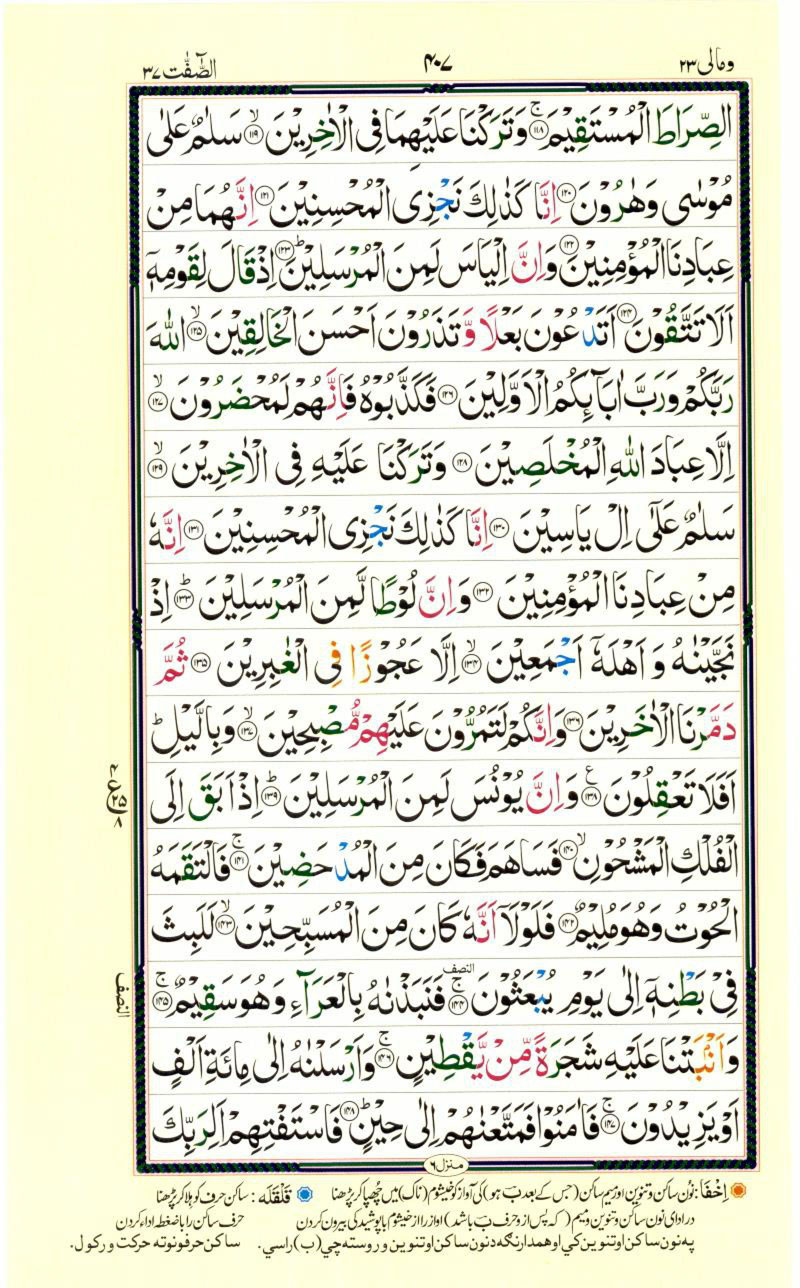 ومالی ۲۳
۴۰۷
الصّٰٓفّٰت ۳۷
الصِّرَاطَ الْمُسْتَقِيْمَ ۚ﴿۱۱۸﴾ وَتَرَكْنَا عَلَيْهِمَا فِى الْاٰخِرِيْنَ ۙ﴿۱۱۹﴾ سَلٰمٌ عَلٰى
مُوْسٰى وَهٰرُوْنَ ﴿۱۲۰﴾ اِنَّا كَذٰلِكَ نَجْزِى الْمُحْسِنِيْنَ ﴿۱۲۱﴾ اِنَّهُمَا مِنْ
عِبَادِنَا الْمُؤْمِنِيْنَ ﴿۱۲۲﴾ وَاِنَّ اِلْيَاسَ لَمِنَ الْمُرْسَلِيْنَ ؕ﴿۱۲۳﴾ اِذْ قَالَ لِقَوْمِهٖۤ
اَلَا تَتَّقُوْنَ ﴿۱۲۴﴾ اَتَدْعُوْنَ بَعْلًا وَّتَذَرُوْنَ اَحْسَنَ الْخَالِقِيْنَ ۙ﴿۱۲۵﴾ اللّٰهَ
رَبَّكُمْ وَرَبَّ اٰبَآئِكُمُ الْاَوَّلِيْنَ ﴿۱۲۶﴾ فَكَذَّبُوْهُ فَاِنَّهُمْ لَمُحْضَرُوْنَ ۙ﴿۱۲۷﴾
اِلَّا عِبَادَ اللّٰهِ الْمُخْلَصِيْنَ ﴿۱۲۸﴾ وَتَرَكْنَا عَلَيْهِ فِى الْاٰخِرِيْنَ ۙ﴿۱۲۹﴾
سَلٰمٌ عَلٰٓى اِلْ يَاسِيْنَ ﴿۱۳۰﴾ اِنَّا كَذٰلِكَ نَجْزِى الْمُحْسِنِيْنَ ﴿۱۳۱﴾ اِنَّهٗ
مِنْ عِبَادِنَا الْمُؤْمِنِيْنَ ﴿۱۳۲﴾ وَاِنَّ لُوْطًا لَّمِنَ الْمُرْسَلِيْنَ ؕ﴿۱۳۳﴾ اِذْ
نَجَّيْنٰهُ وَاَهْلَهٗۤ اَجْمَعِيْنَ ۙ﴿۱۳۴﴾ اِلَّا عَجُوْزًا فِى الْغٰبِرِيْنَ ﴿۱۳۵﴾ ثُمَّ
دَمَّرْنَا الْاٰخَرِيْنَ ﴿۱۳۶﴾ وَاِنَّكُمْ لَتَمُرُّوْنَ عَلَيْهِمْ مُّصْبِحِيْنَ ۙ﴿۱۳۷﴾ وَبِالَّيْلِ ؕ
اَفَلَا تَعْقِلُوْنَ ﴿۱۳۸﴾ع وَاِنَّ يُوْنُسَ لَمِنَ الْمُرْسَلِيْنَ ؕ﴿۱۳۹﴾ اِذْ اَبَقَ اِلَى
الْفُلْكِ الْمَشْحُوْنِ ۙ﴿۱۴۰﴾ فَسَاهَمَ فَكَانَ مِنَ الْمُدْحَضِيْنَ ۚ﴿۱۴۱﴾ فَالْتَقَمَهُ
الْحُوْتُ وَهُوَ مُلِيْمٌ ﴿۱۴۲﴾ فَلَوْلَاۤ اَنَّهٗ كَانَ مِنَ الْمُسَبِّحِيْنَ ۙ﴿۱۴۳﴾ لَلَبِثَ
فِىْ بَطْنِهٖۤ اِلٰى يَوْمِ يُبْعَثُوْنَ ۚ﴿۱۴۴﴾ النصف فَنَبَذْنٰهُ بِالْعَرَآءِ وَهُوَ سَقِيْمٌ ۚ﴿۱۴۵﴾
وَاَنْۢبَتْنَا عَلَيْهِ شَجَرَةً مِّنْ يَّقْطِيْنٍ ۚ﴿۱۴۶﴾ وَاَرْسَلْنٰهُ اِلٰى مِائَةِ اَلْفٍ
اَوْ يَزِيْدُوْنَ ۚ﴿۱۴۷﴾ فَاٰمَنُوْا فَمَتَّعْنٰهُمْ اِلٰى حِيْنٍ ؕ﴿۱۴۸﴾ فَاسْتَفْتِهِمْ اَلِرَبِّكَ
ع ۲۵
النصف
منزل ۶
اِخفَا: نُون ساکن و تنوین اور میم ساکن (جس کے بعد بَ ہو) کی آواز کو خیشوم (ناک) میں چھپا کر پڑھنا قَلْقَلَه: ساکن حرف کو ہلا کر پڑھنا
در ادای نون ساکن و تنوین و میم (که پس از و حرف بَ باشد) اواز را از خیشوم با پوشید گی بیرون کردن حرف ساکن را با ضغطه اداء کردن
په نون ساکن او تنوین کي او همدارنګه د نون ساکن او تنوین و روسته چي (ب) راسي. ساکن حرفونو ته حرکت ورکول.